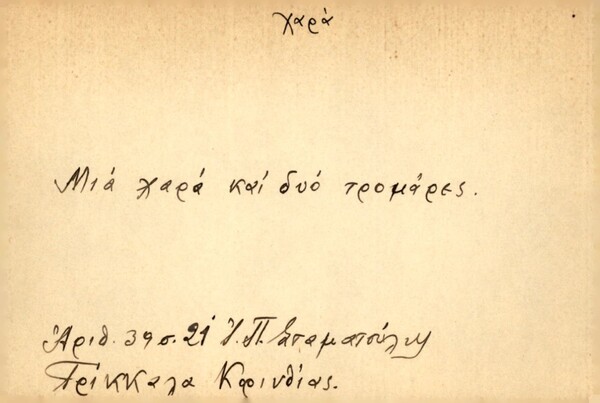 χαρά
Μιά χαρά καί δυό τρομάρες.
Ἀριθ. 39 σ. 21 Ἰ. Π. Σταματούλη
Τρίκκαλα Κορινθίας.